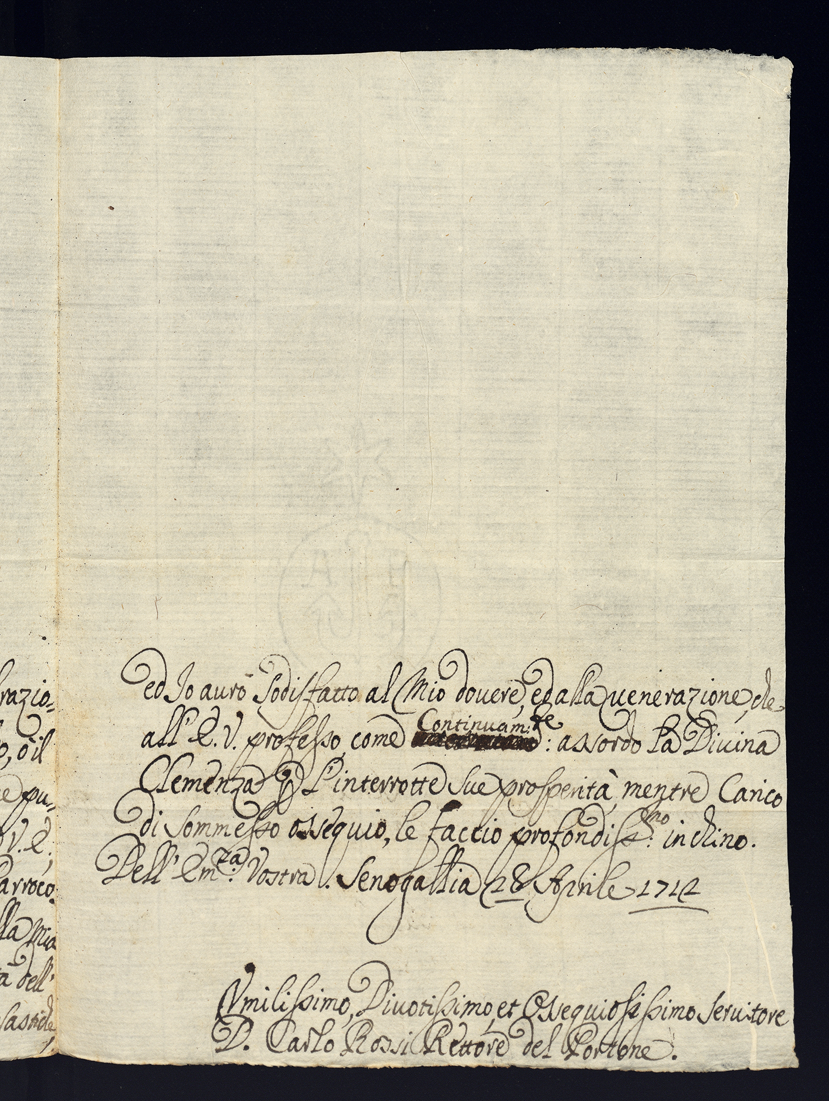 razio=
o, o il
e pu=
V. E.
arroco
lla Mia
tà dell'
ed Io aurò Sodisfatto al Mio douere, ed alla uenerazione, che
all' E. V. professo, come Continuam:te : assordo la Diuina
Clemenza p L'interrotte sue prosperità, mentre Carico
di sommesso ossequio, le faccio profondiss:mo inchino.
Dell' Em:za Vostra. Senogallia 28 Aprile 1712
Vmilissimo, Diuotissimo, et Ossequiosissimo Seruitore
D. Carlo Rossi Rettore del Portone.